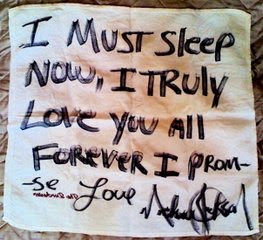 I MUST SLEEP
NOW, I TRULY
LOVE YOU ALL
FOREVER I PROM-
-SE Love